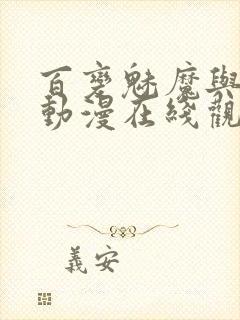 百變魅魔與
動漫在綫觀
義安